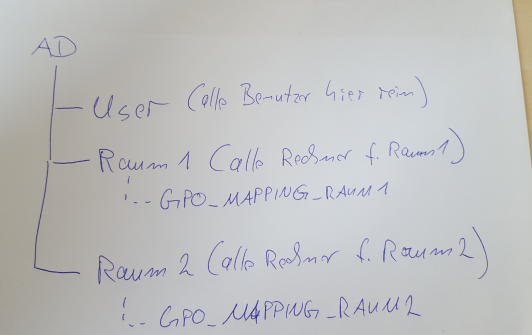 AD
User (alle Benutzer hier rein)
Raum 1 (alle Rechner f. Raum1)
GPO_MAPPING_RAUM1
Raum 2 (alle Rechner f. Raum2)
GPO_MAPPING_RAUM2